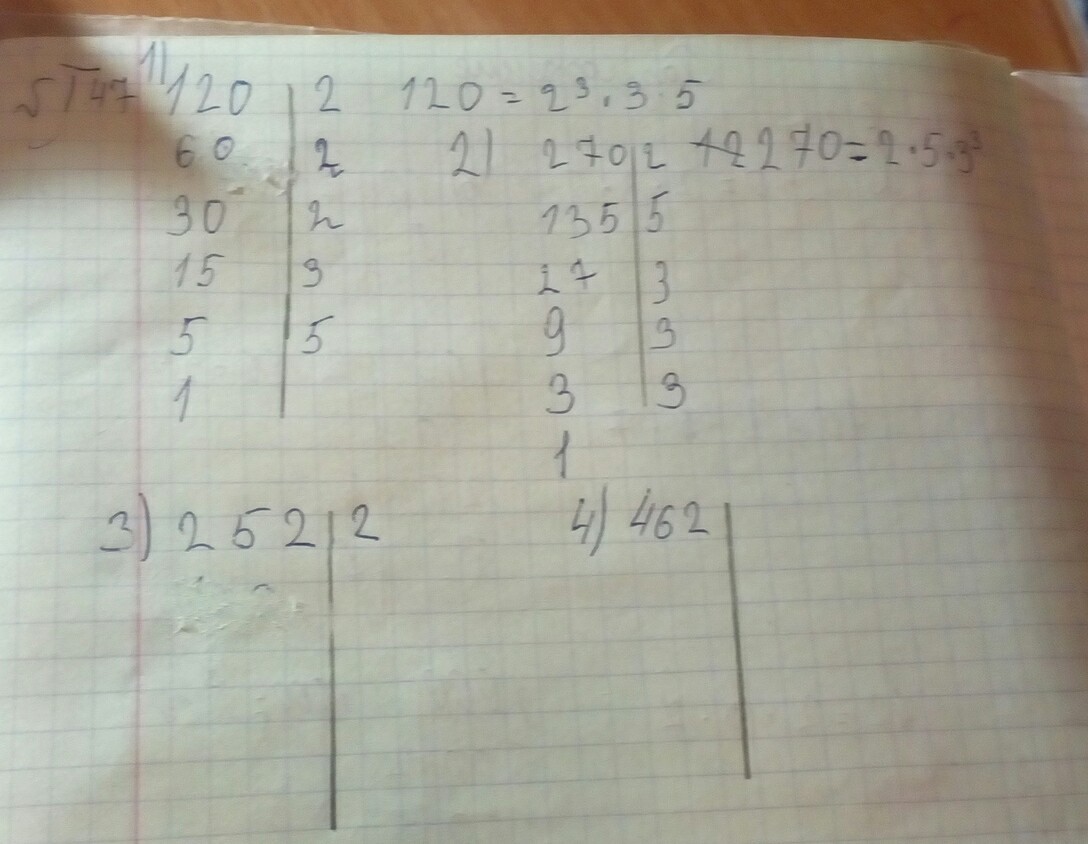 1) 120 | 2 120 = 2³ · 3 · 5
60 | 2
30 | 2
15 | 3
5 | 5
1
2) 270 | 2 270 = 2 · 5 · 3³
135 | 5
27 | 3
9 | 3
3 | 3
1
3) 252 | 2
4) 462 |